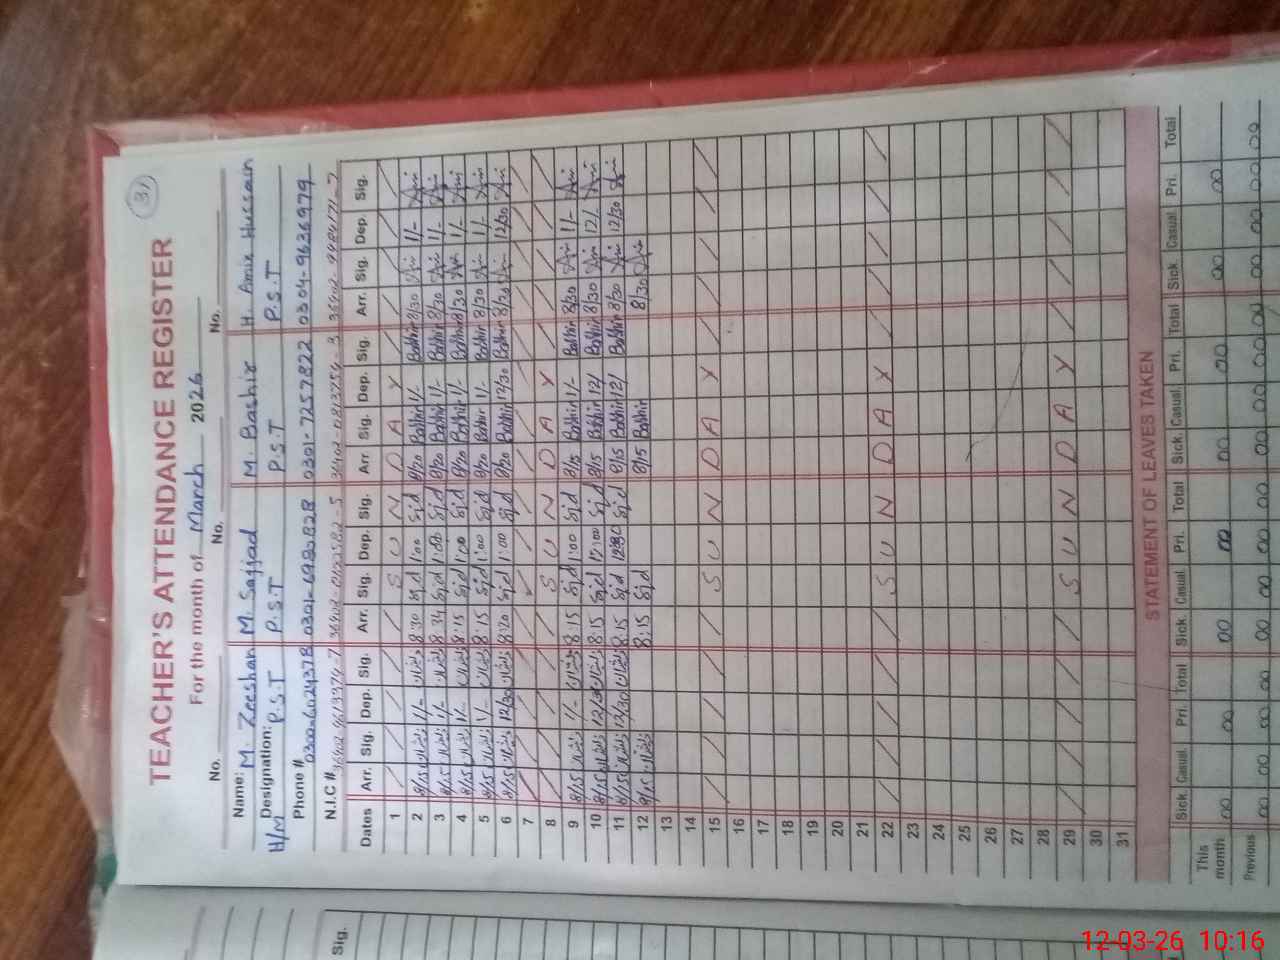 31
TEACHER'S ATTENDANCE REGISTER
For the month of March 2026
No. No. No.
Name: M. Zeeshan M. Sajjad M. Bashir H. Amir Hussain
Designation: P.S.T P.S.T P.S.T P.S.T
H/M
Phone # 0301-7257822 0304-9636979
N.I.C #
Dates Arr. Sig. Dep. Sig. Arr. Sig. Dep. Sig. Arr. Sig. Dep. Sig. Arr. Sig. Dep. Sig.
1 S U N D A Y
2 8/15 1/- 8:30 Sjd 1:00 Sjd 8/20 Bashir 1/- Bashir 8/30 1/-
3 8/15 1/- 8:34 Sjd 1:00 Sjd 8/20 Bashir 1/- Bashir 8/30 1/-
4 8/15 1/- 8:15 Sjd 1:00 Sjd 8/20 Bashir 1/- Bashir 8/30 1/-
5 8/15 1/- 8:15 Sjd 1:00 Sjd 8/20 Bashir 1/- Bashir 8/30 1/-
6 8/15 12/30 8:20 Sjd 1:00 Sjd 8/20 Bashir 12/30 Bashir 8/30 12/30
7
8 S U N D A Y
9 8/15 1/- 8:15 Sjd 1:00 Sjd 8/15 Bashir 1/- Bashir 8/30 1/-
10 8/15 12/30 8:15 Sjd Sjd 8/15 Bashir 12/ Bashir 8/30 12/
11 8/15 12/30 8:15 Sjd Sjd 8/15 Bashir 12/ Bashir 8/30 12/30
12 8/15 8:15 Sjd 8/15 Bashir 8/30
13
14
15 S U N D A Y
16
17
18
19
20
21
22 S U N D A Y
23
24
25
26
27
28
29 S U N D A Y
30
31
STATEMENT OF LEAVES TAKEN
Sick. Casual. Pri. Total Sick. Casual. Pri. Total Sick. Casual. Pri. Total Sick. Casual. Pri. Total
This month 00 00 00 00 00 00 00 00
Previous 00 00 00 00 00 00 00 00 00 00 00 00
Sig.
12-03-26 10:16